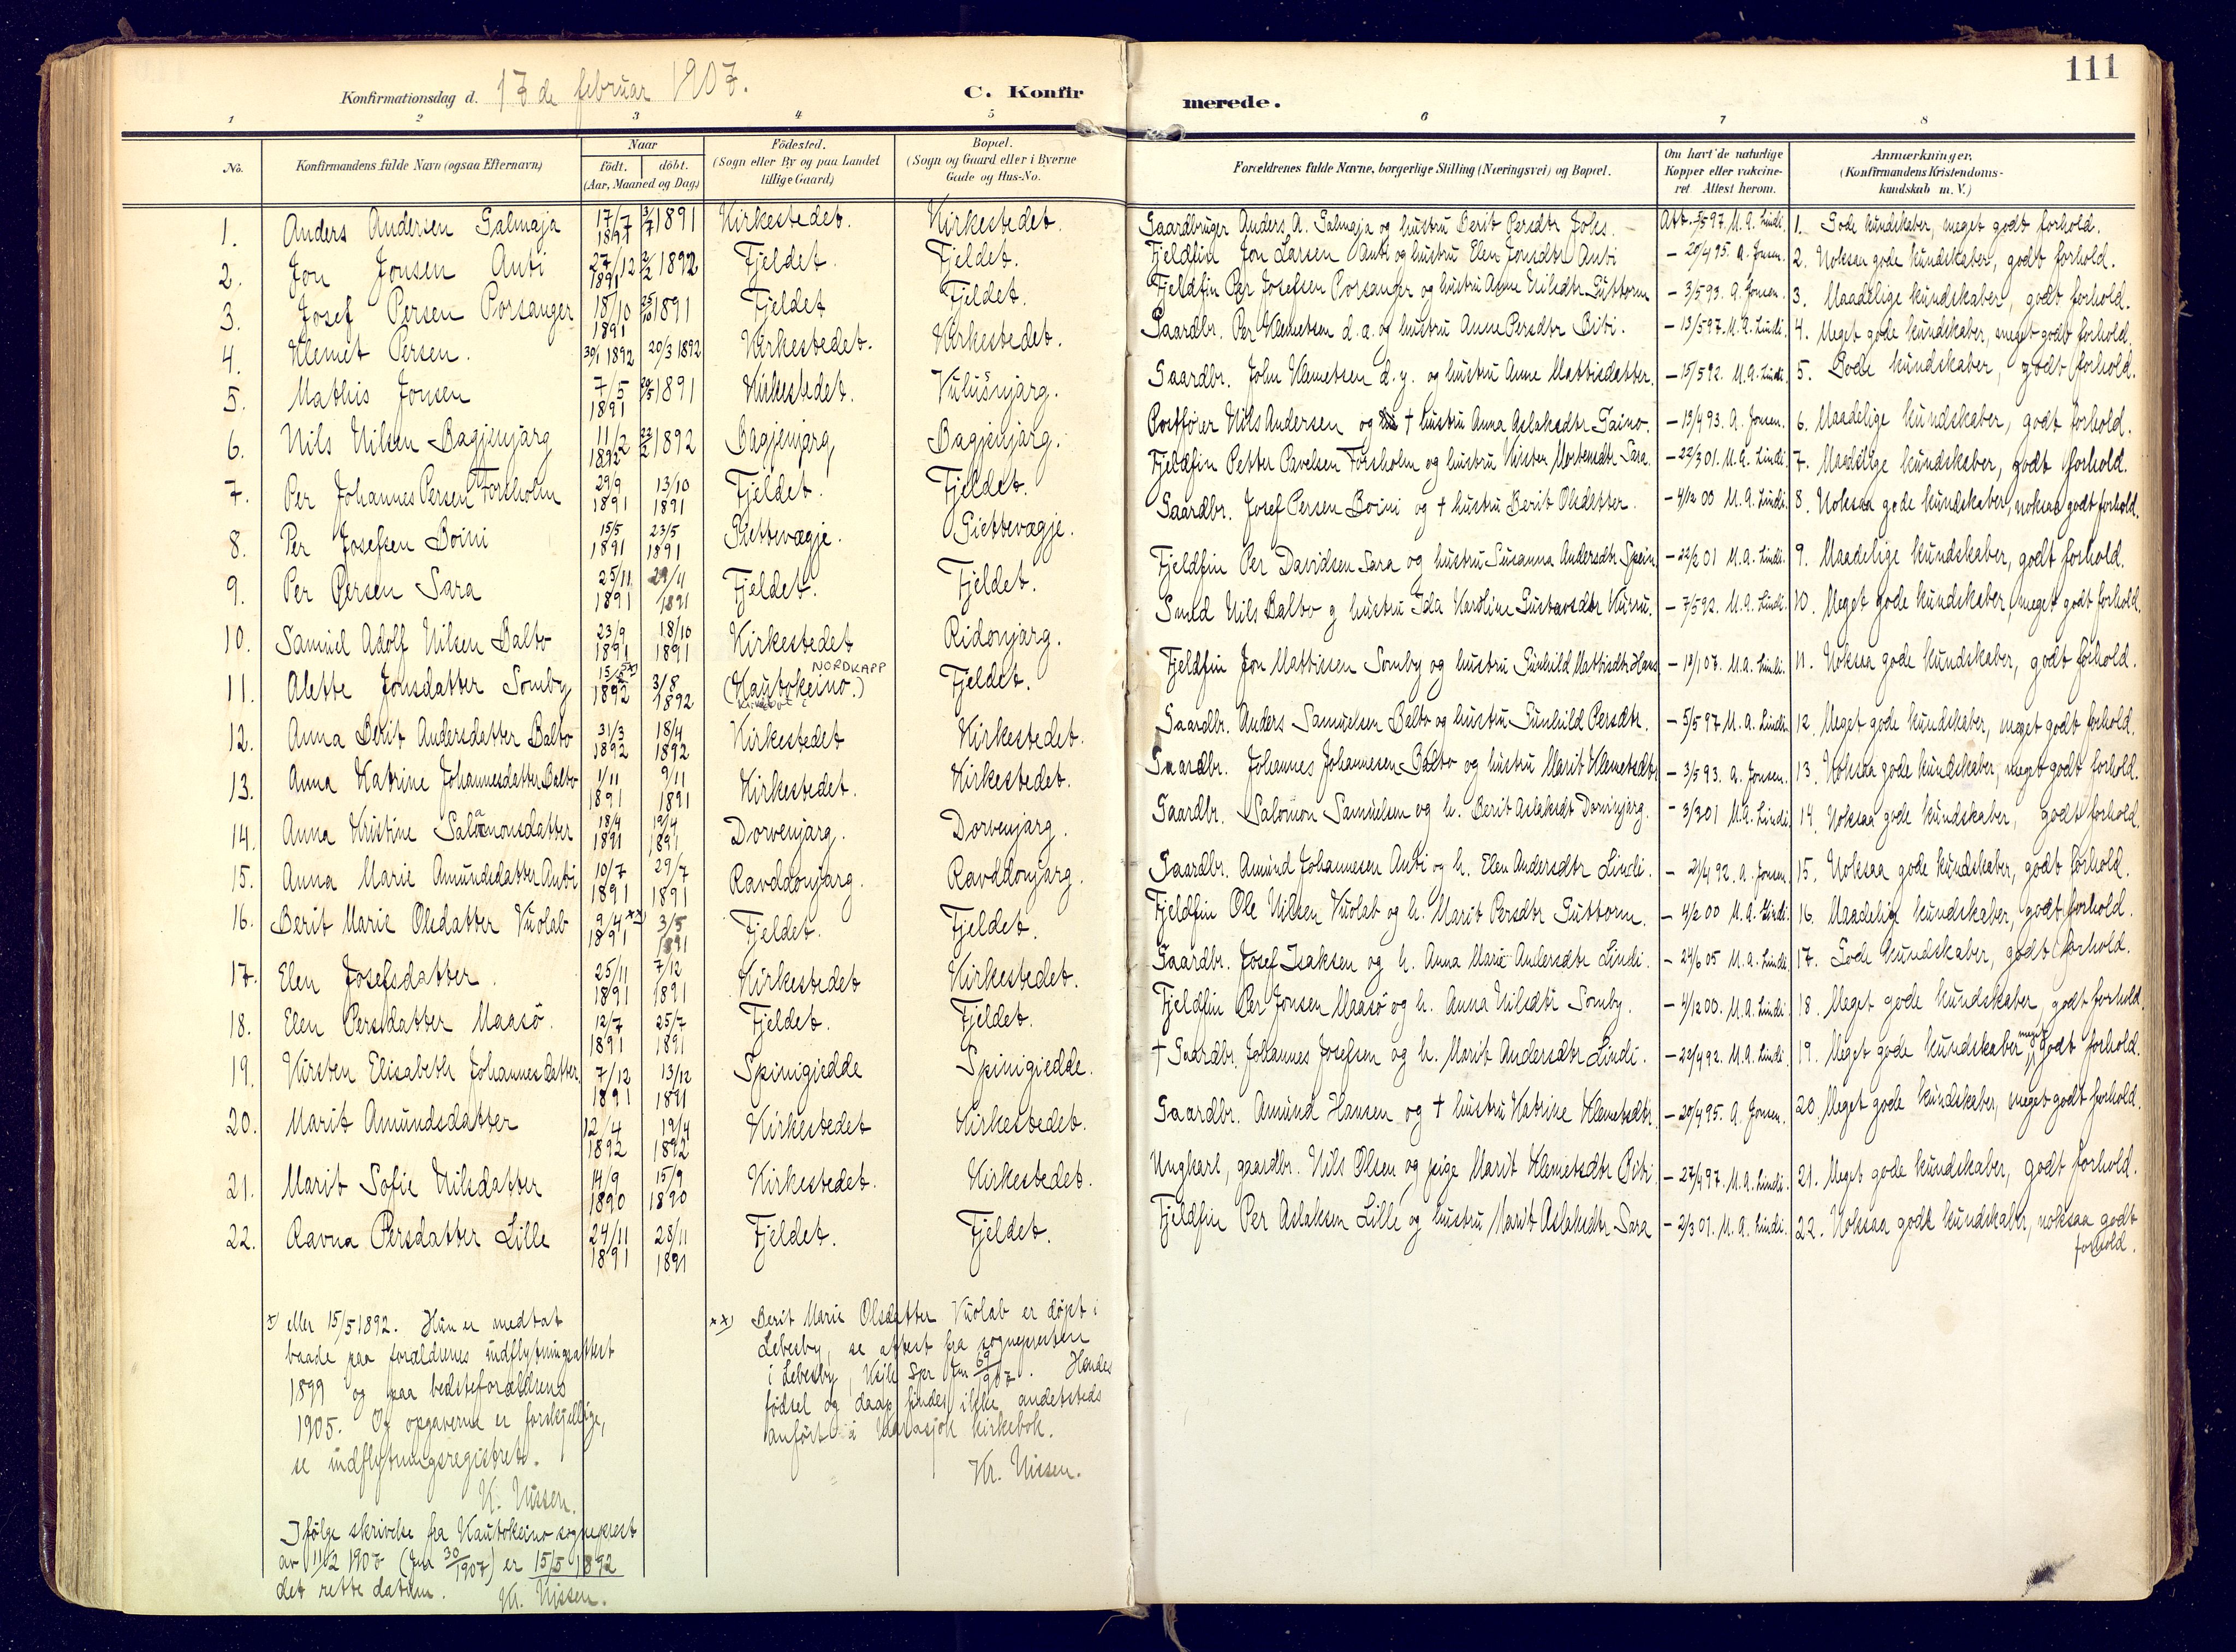 111
Konfirmationsdag d. 17de februar 1907. C. Konfirmerede.
1 2 3 4 5 6 7 8
No. Konfirmandens fulde Navn (ogsaa Efternavn) Naar födt. döbt. (Aar, Maaned og Dag.) Födested. (Sogn eller By og paa Landet tillige Gaard) Bopæl. (Sogn og Gaard eller i Byerne Gade og Hus-No. Forældrenes fulde Navne, borgerlige Stilling (Næringsvei) og Bopæl. Om havt de naturlige Kopper eller vakcineret Attest herom. Anmærkninger, (Konfirmandens Kristendomskundskab m. V.)
1. Anders Andersen Galmaja 17/7 1891 1891 Kirkestedet. Kirkestedet. Gaardbruger Anders A. Galmaja og hustru Berit Persdtr Johs. Att. 3/5 97. M. A. Lindi. 1. Gode kundskaber, meget godt forhold.
2. Jon Jonsen Anti 27/12 1891 2/2 1892 Fjeldet. Fjeldet. Fjeldfin Jon Larsen Anti og hustru Elen Jonsdtr Anti – 20/4 95. A. Jonsen. 2. Noksaa gode kundskaber, godt forhold.
3. Josef Persen Porsanger 18/10 1891 25/10 1891 Fjeldet Fjeldet. Fjeldfin Per Josefsen Porsanger og hustru Anne Nilsdtr Guttorm – 3/5 93. A. Jonsen. 3. Maadelige kundskaber, godt forhold.
4. Klemet Persen. 30/1 1892 20/3 1892 Kirkestedet. Kirkestedet. Gaardbr. Per Klemetsen d. a. og hustru Anne Persdtr Biti. – 13/5 97. M. A. Lindi. 4. Meget gode kundskaber, meget godt forhold.
5. Mathis Jonsen 7/5 1891 1891 Kirkestedet. Vulusnjarg. Gaardbr. John Klemetsen d. y. og hustru Anne Mattisdatter. – 15/5 92. M. A. Lindi. 5. Gode kundskaber, godt forhold.
6. Nils Nilsen Bagjenjarg 11/2 1892 22/2 1892 Bagjenjarg, Bagjenjarg. Postfører Nils Andersen og † hustru Anna Aslaksdtr Gaino. – 13/4 93. A. Jonsen. 6. Maadelige kundskaber, godt forhold.
7. Per Johannes Persen Forsholm 29/9 1891 13/10 1891 Fjeldet. Fjeldet. Fjeldfin Petter Pavelsen Forsholm og hustru Kirsten Mortensdtr Sara. – 22/3 01. M. A. Lindi. 7. Maadelige kundskaber, godt forhold.
8. Per Josefsen Boini 15/5 1891 23/5 1891 Giettevægje. Giettevægje. Gaardbr. Josef Persen Boini og † hustru Berit Olsdatter. – 4/12 00 M. A. Lindi. 8. Noksaa gode kundskaber, noksaa godt forhold.
9. Per Persen Sara 25/11 1891 29/11 1891 Fjeldet. Fjeldet. Fjeldfin Per Davidsen Sara og hustru Susanna Andersdtr Spein. – 22/2 01 M. A. Lindi. 9. Maadelige kundskaber, godt forhold.
10. Samuel Adolf Nilsen Balto 23/9 1891 18/10 1891 Kirkestedet Ridonjarg. Smed Nils Balto og hustru Ida Karoline Gustavsdtr Kurru. – 7/5 92. M. A. Lindi. 10. Meget gode kundskaber, meget godt forhold.
11. Alette Jonsdatter Somby 15/5 x) 1892 3/8 1892 (Kautokeino.) NORDKAPP Fjeldet. Fjeldfin Jon Mattissen Somby og hustru Gunhild Mattisdtr Hans – 18/1 07. M. A. Lindi. 11. Noksaa gode kundskaber, godt forhold.
12. Anna Berit Andersdatter Balto 31/3 1892 18/4 1892 Kirkestedet Kirkestedet. Gaardbr. Anders Samuelsen Balto og hustru Gunhild Persdtr. – 5/5 97 M. A. Lindi. 12. Meget gode kundskaber, meget godt forhold.
13. Anna Katrine Johannesdatter Balto 1/11 1891 9/11 1891 Kirkestedet. Kirkestedet. Gaardbr. Johannes Johannesen Balto og hustru Marit Klemetsdtr – 3/5 93. A. Jonsen. 13. Noksaa gode kundskaber, meget godt forhold.
14. Anna Kristine Salamonsdatter 18/4 1891 19/4 1891 Dorvenjarg. Dorvenjarg. Gaardbr. Salomon Samuelsen og h. Berit Aslaksdt Dorvinjarg. – 3/3 01 M. A. Lindi 14. Noksaa gode kundskaber, godt forhold.
15. Anna Marie Amundsdatter Anti 10/7 1891 29/7 1891 Ravddonjarg. Ravddonjarg. Gaardbr. Amund Johannesen Anti og h. Elen Andersdtr Lindi. – 21/4 92. A. Jonsen. 15. Noksaa gode kundskaber, godt forhold.
16. Berit Marie Olsdatter Vuolab 9/4 xx) 1891 3/5 1891 Fjeldet. Fjeldet. Fjeldfin Ole Nilsen Vuolab og h. Marit Persdtr Guttorm. – 4/2 00 M. A. Lindi. 16. Maadelige kundskaber, godt forhold.
17. Elen Josefsdatter. 25/11 1891 7/12 1891 Kirkestedet Kirkestedet. Gaardbr. Josef Isaksen og h. Anna Marie Andersdtr Lindi. – 24/6 05 M. A. Lindi. 17. Gode kundskaber, godt forhold.
18. Elen Persdatter Maasö. 12/7 1891 25/7 1891 Fjeldet. Fjeldet. Fjeldfin Per Jonsen Maasö og h. Anna Nilsdtr Somby. – 4/12 00. M. A. Lindi. 18. Meget gode kundskaber, godt forhold.
19. Kirsten Elisabeth Johannesdatter. 7/12 1891 13/12 1891 Spinigiedde Spinigiedde. † Gaardbr. Johannes Josefsen og h. Marit Andersdtr Lindi. – 22/4 92. M. A. Lindi. 19. Meget gode kundskaber, meget godt forhold.
20. Marit Amundsdatter 12/4 1892 19/4 1892 Kirkestedet Kirkestedet. Gaardbr. Amund Hansen og † hustru Katrine Klemetsdtr. – 20/4 95. A. Jonsen. 20. Meget gode kundskaber, meget godt forhold.
21. Marit Sofie Nilsdatter 14/9 1890 15/9 1890 Kirkestedet. Kirkestedet. Ungkarl, gaardbr. Nils Olsen og pige Marit Klemetsdtr Biti. – 27/4 97. M. A. Lindi. 21. Meget gode kundskaber, godt forhold.
22. Ravna Persdatter Lille 24/11 1891 28/11 1891 Fjeldet. Fjeldet. Fjeldfin Per Aslaksen Lille og hustru Marit Aslaksdtr Sara – 2/3 01. M. A. Lindi. 22. Noksaa gode kundskaber, noksaa godt forhold.
x) eller 15/5 1892. Hun er medtat
baade paa forældrenes indflytningsattest
1899 og paa bedsteforældrens
1905. Og opgaverne er forskjellige,
se indflytningsregistret.
K. Nissen.
Ifölge skrivelse fra Kautokeino sogneprest
av 11/2 1907 (Jnr 30/1907) er 15/5 1892
det rette datum. Kr. Nissen.
xx) Berit Marie Olsdatter Vuolab er döpt i
Lebesby, se attest fra sognepresten
i Lebesby, Kjile Spr Jnr 69/907. Hendes
födsel og daap findes ikke andetsteds
anfört i Karasjok kirkebok.
Kr. Nissen.